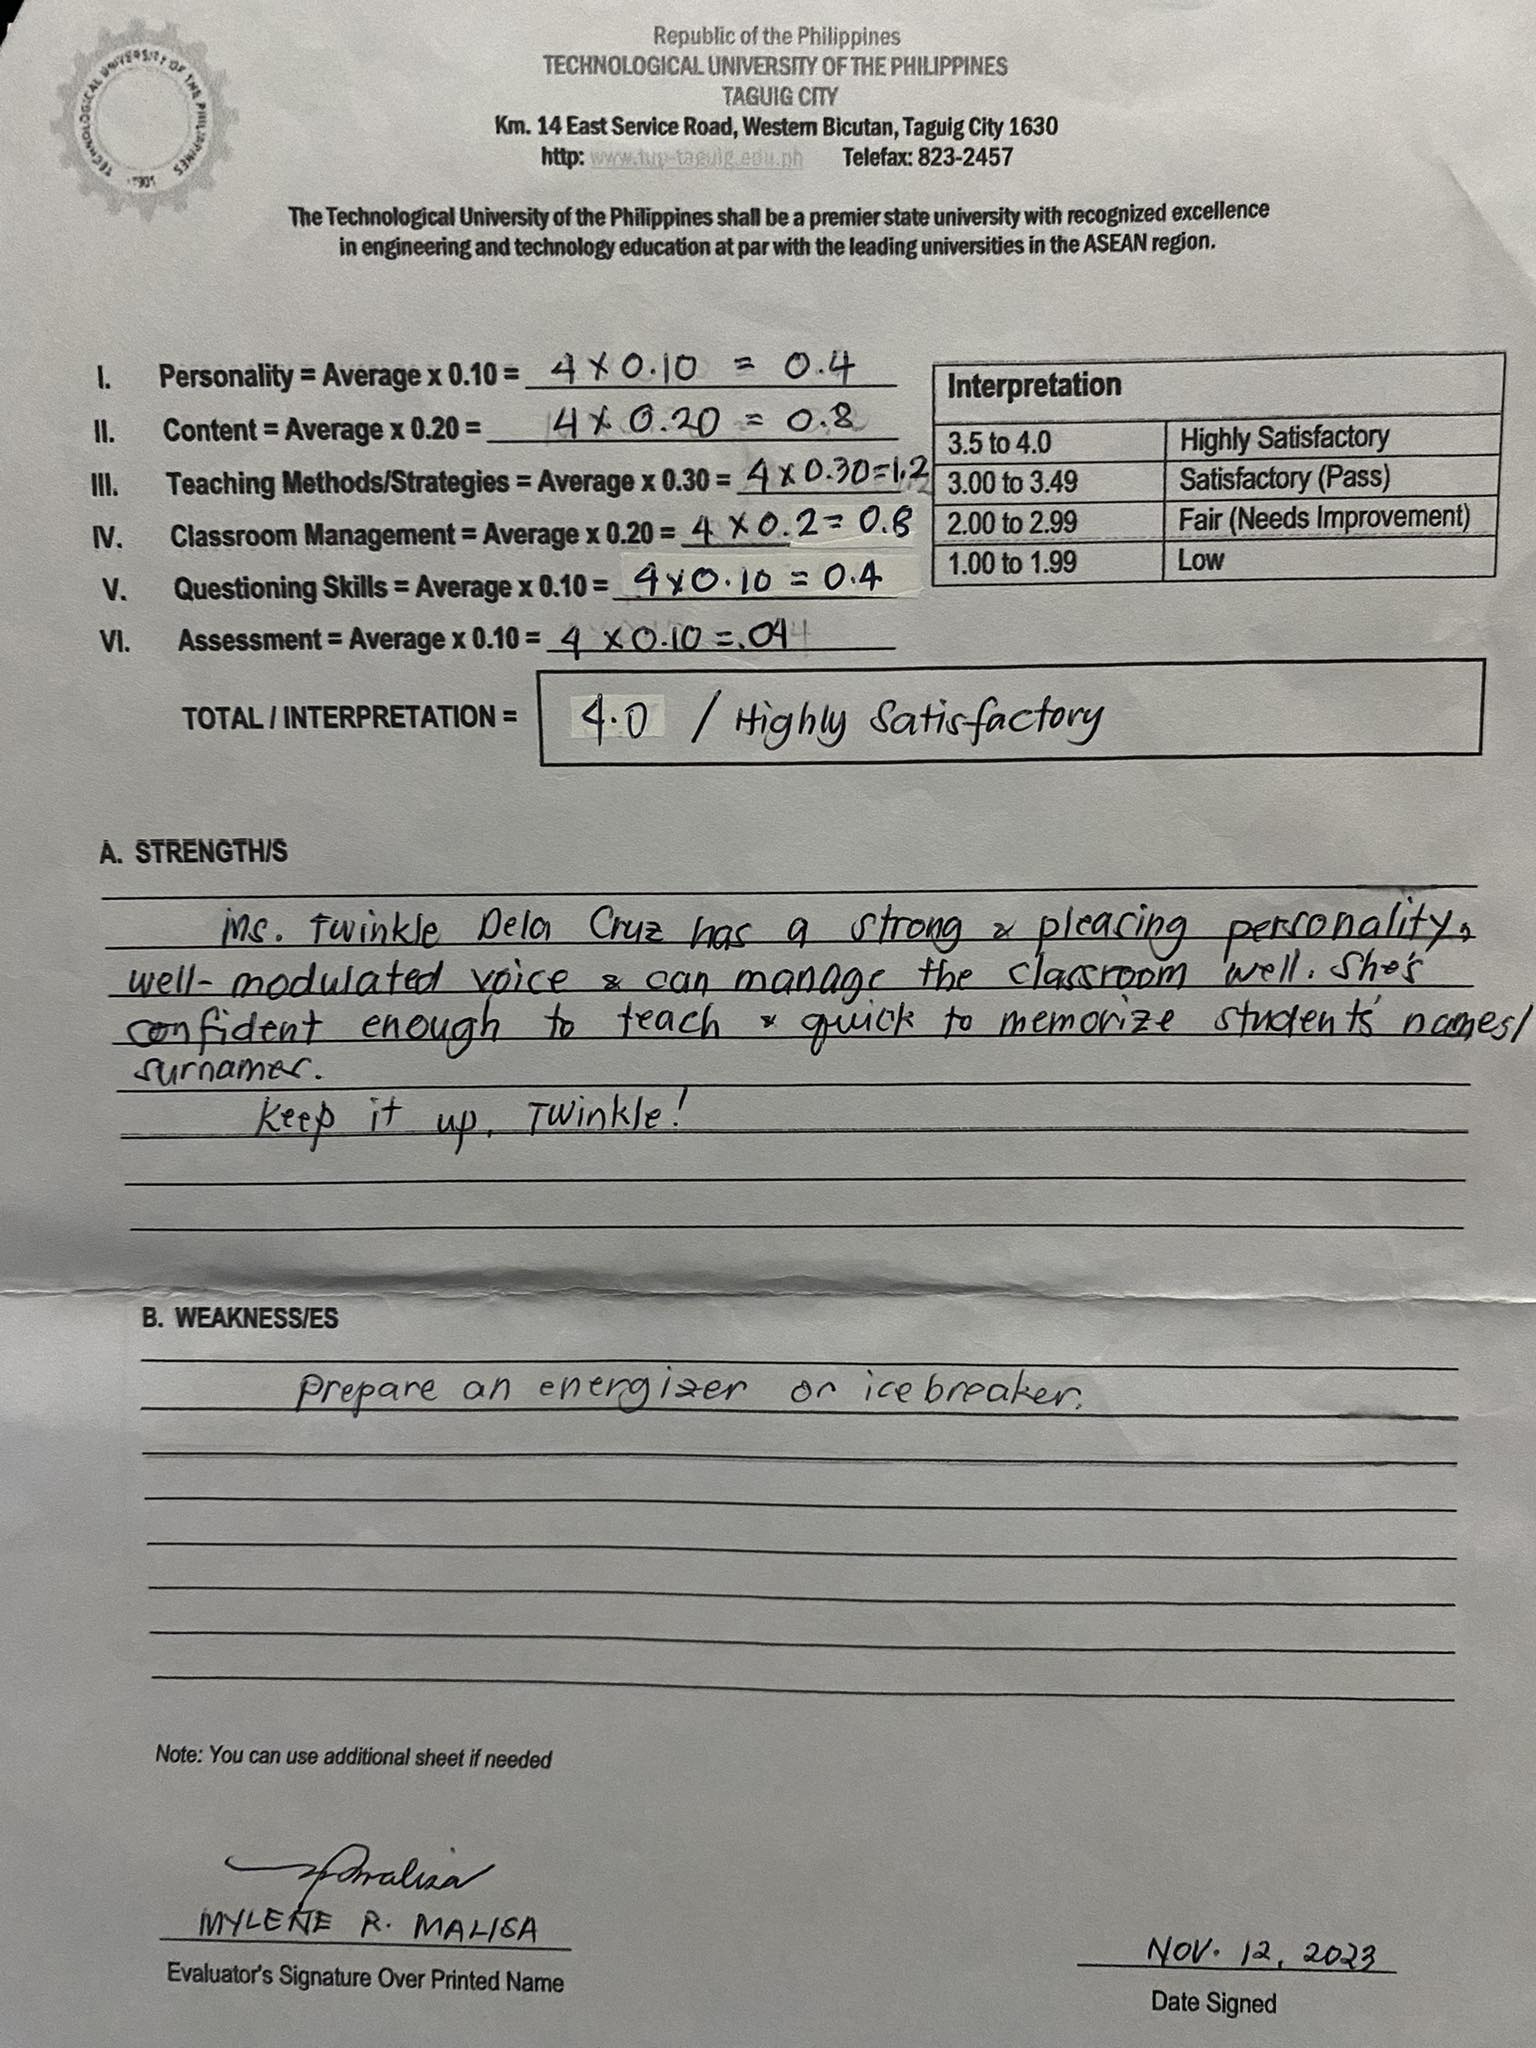 TECHNOLOGICAL UNIVERSITY OF THE PHILIPPINES
1901
Republic of the Philippines
TECHNOLOGICAL UNIVERSITY OF THE PHILIPPINES
TAGUIG CITY
Km. 14 East Service Road, Western Bicutan, Taguig City 1630
http: www.tup-taguig.edu.ph Telefax: 823-2457
The Technological University of the Philippines shall be a premier state university with recognized excellence
in engineering and technology education at par with the leading universities in the ASEAN region.
I. Personality = Average x 0.10 = 4 x 0.10 = 0.4
II. Content = Average x 0.20 = 4 x 0.20 = 0.8
III. Teaching Methods/Strategies = Average x 0.30 = 4 x 0.30 = 1.2
IV. Classroom Management = Average x 0.20 = 4 x 0.2 = 0.8
V. Questioning Skills = Average x 0.10 = 4 x 0.10 = 0.4
VI. Assessment = Average x 0.10 = 4 x 0.10 = .04
Interpretation
3.5 to 4.0 Highly Satisfactory
3.00 to 3.49 Satisfactory (Pass)
2.00 to 2.99 Fair (Needs Improvement)
1.00 to 1.99 Low
TOTAL / INTERPRETATION = 4.0 / Highly Satisfactory
A. STRENGTH/S
Ms. Twinkle Dela Cruz has a strong & pleasing personality,
well-modulated voice & can manage the classroom well. She's
confident enough to teach & quick to memorize students' names/
surnames.
Keep it up, Twinkle!
B. WEAKNESS/ES
Prepare an energizer or icebreaker.
Note: You can use additional sheet if needed
MYLENE R. MALISA
Evaluator's Signature Over Printed Name
NOV. 12, 2023
Date Signed